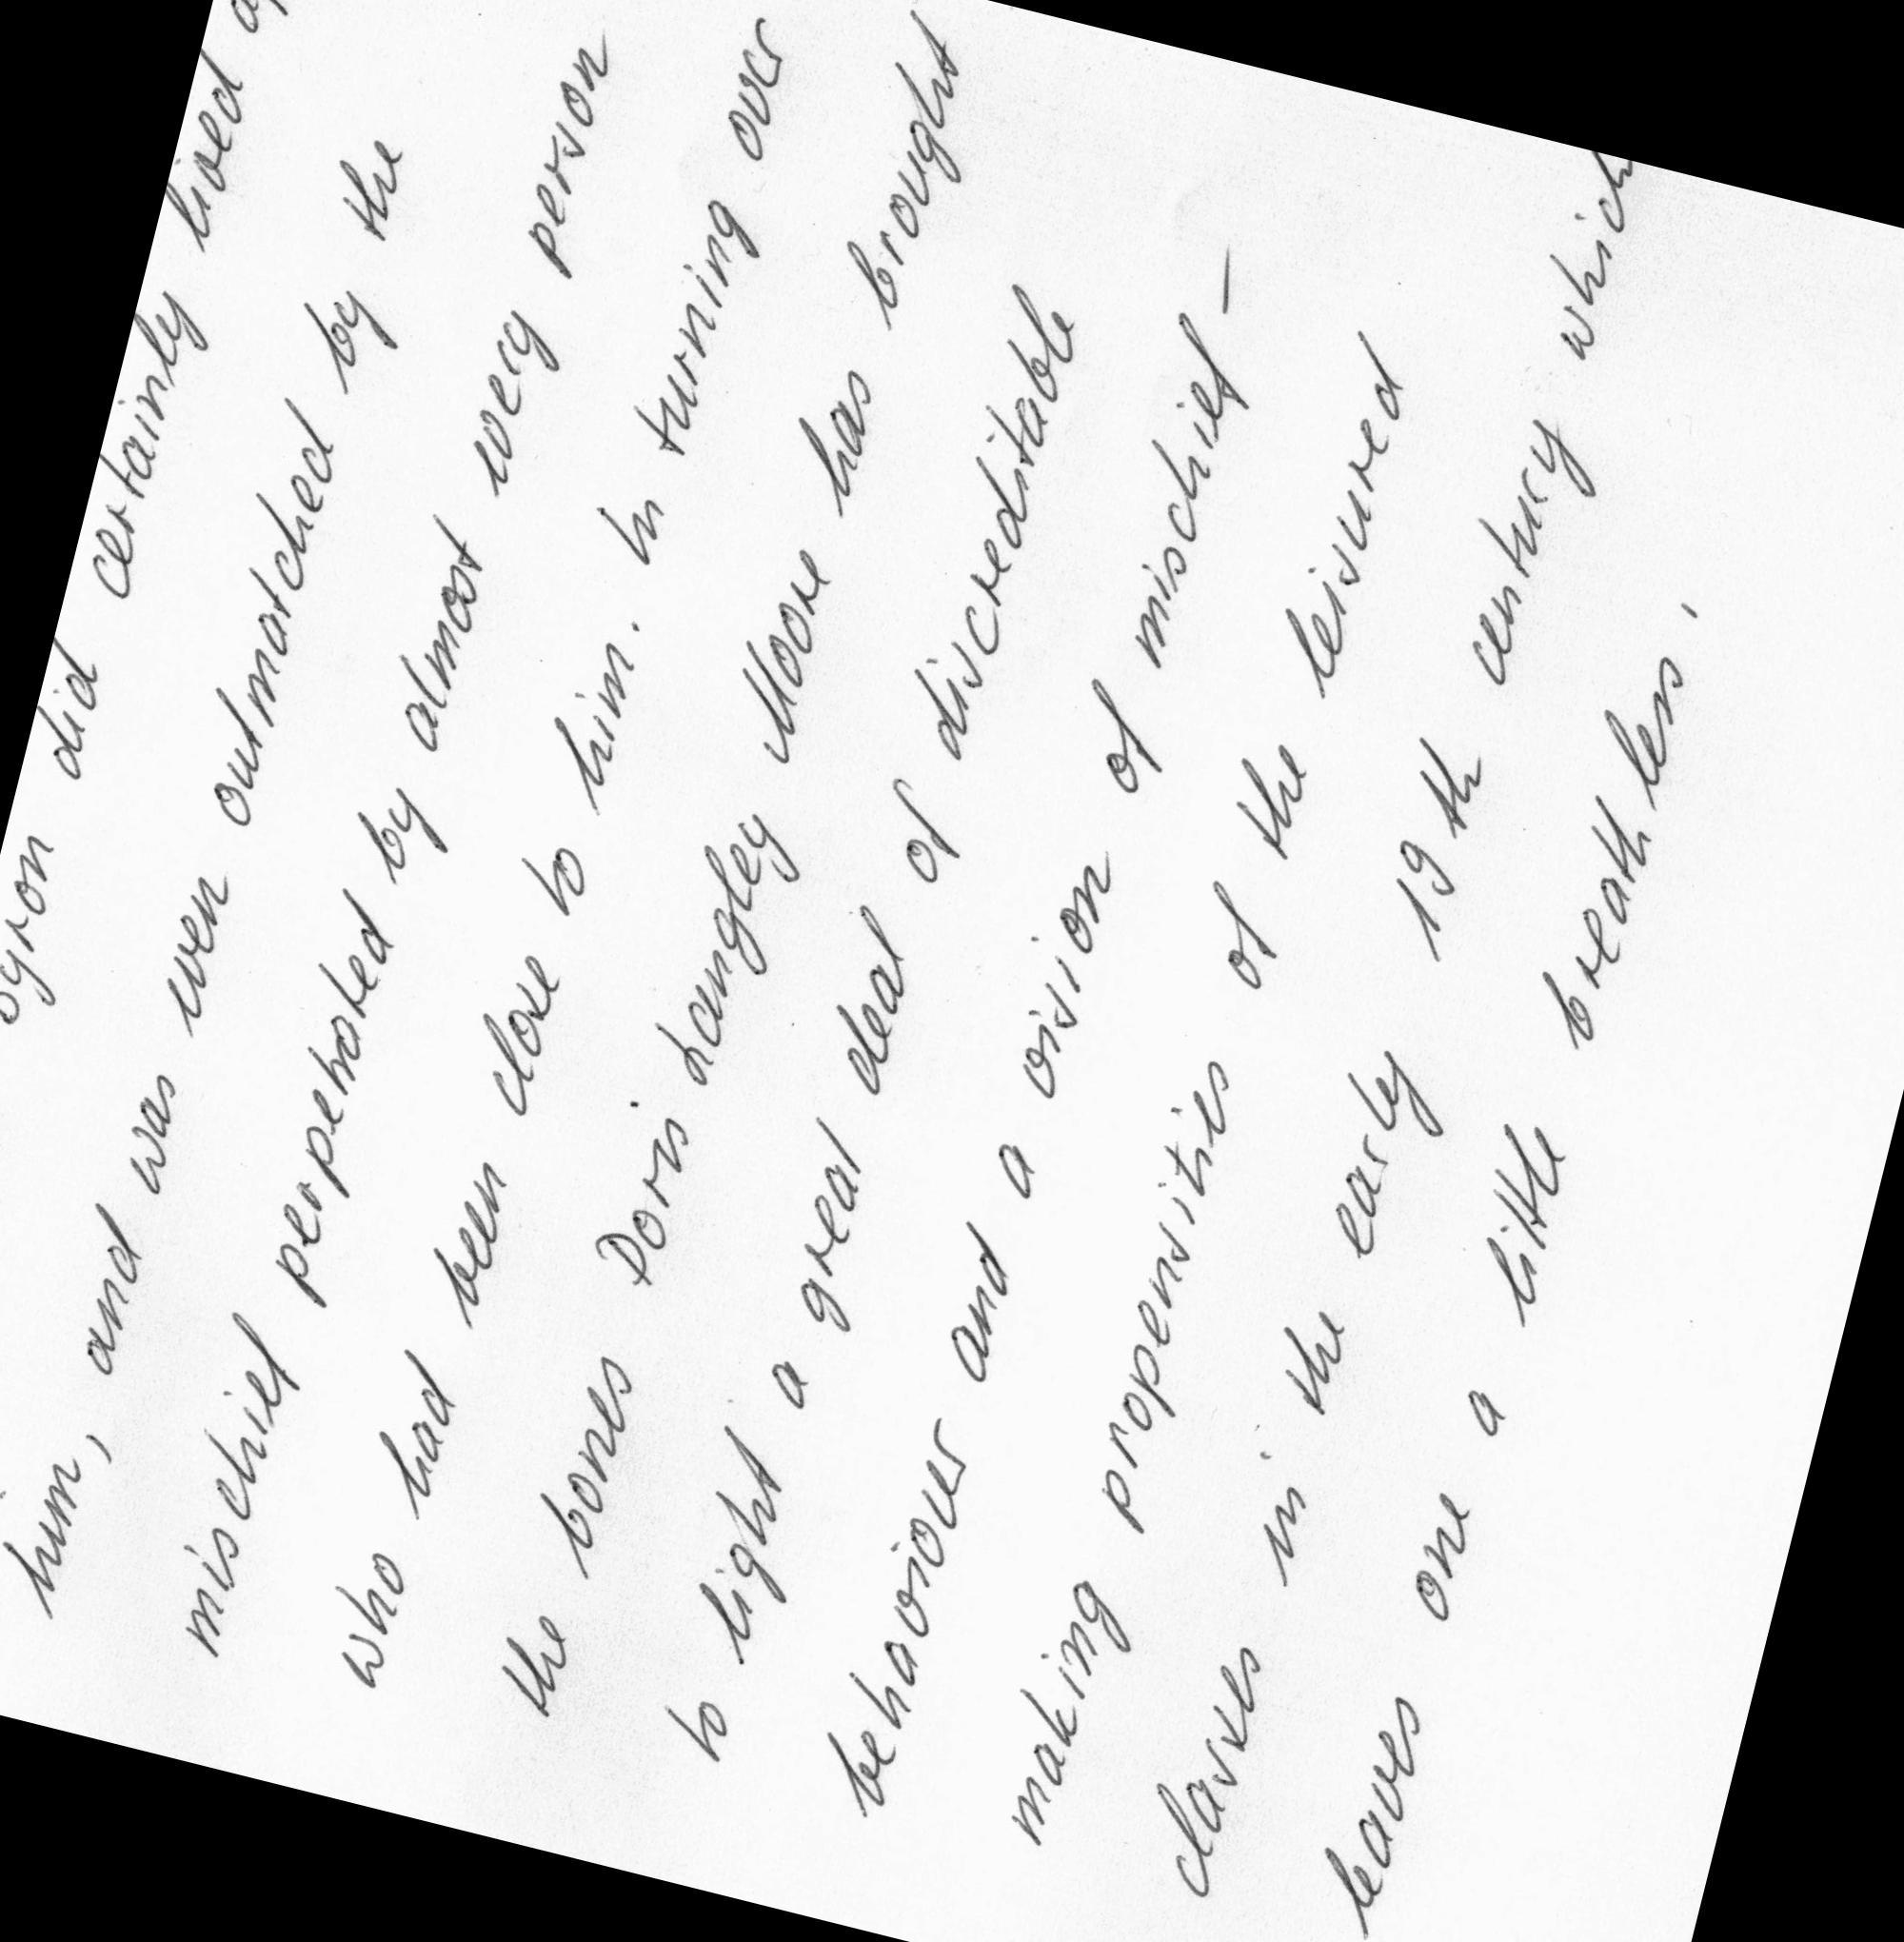 did certainly lived
him, and was even outmatched by the
mischief perpetrated by almost every person
who had been close to him. In turning over
the bones Doris Langley Moore has brought
to light a great deal of discreditable
behaviour and a vision of mischief -
making propensities of the leisured
classes in the early 19th century which
leaves one a little breathless,